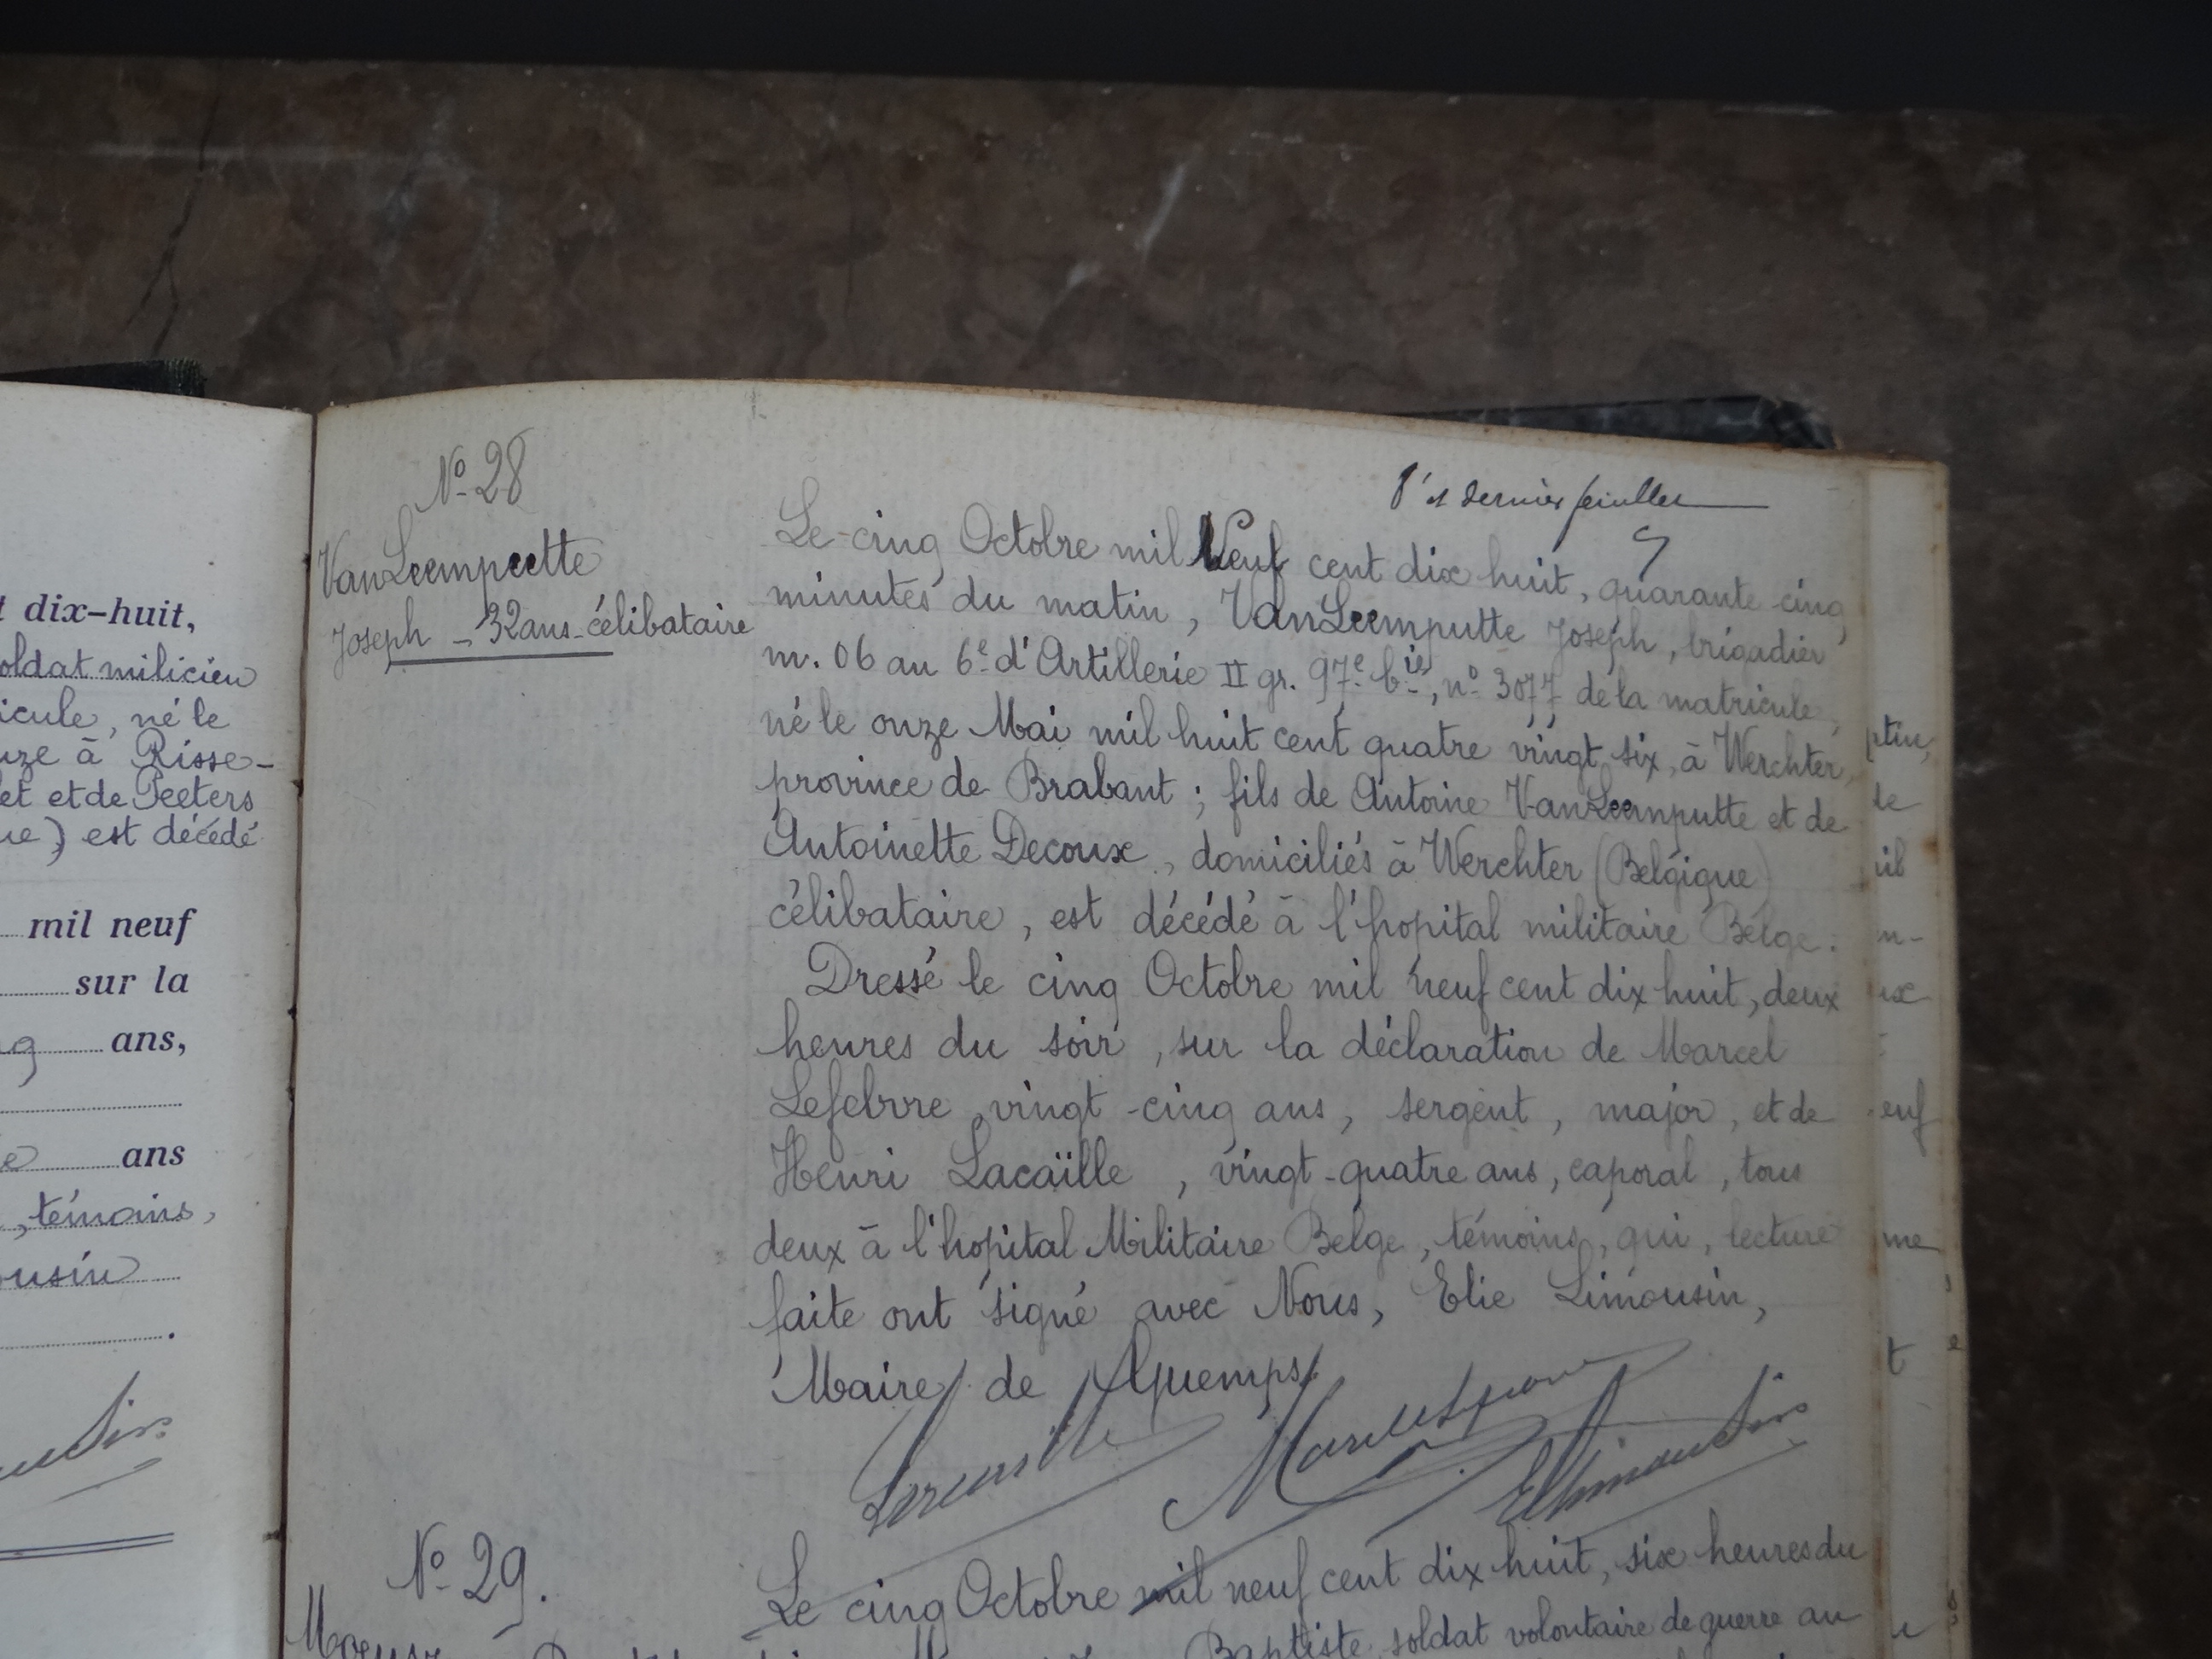 t dix-huit,
oldat milicien
icule, né le
uze à Risse-
et et de Peeters
ue) est décédé
mil neuf
sur la
ans,
ans
, témoins,
ousin
N° 28
VanLeemputte
Joseph - 32 ans - célibataire
dernier feuillet
Le cinq Octobre mil Neuf cent dix huit, quarante cinq
minutes du matin, VanLeemputte Joseph, brigadier
m. 06 au 6e d'Artillerie II gr. 97e bie, n° 3077 de la matricule,
né le onze Mai mil huit cent quatre vingt six, à Werchter,
province de Brabant ; fils de Antoine VanLeemputte et de
Antoinette Decoux, domiciliés à Werchter (Belgique)
célibataire, est décédé à l'hopital militaire Belge.
Dressé le cinq Octobre mil neuf cent dix huit, deux
heures du soir, sur la déclaration de Marcel
Lefebvre, vingt-cinq ans, sergent, major, et de
Henri Lacaïlle, vingt-quatre ans, caporal, tous
deux à l'hopital Militaire Belge, témoins, qui, lecture
faite ont signé avec Nous, Elie Limousin,
Maire de Guemps.
N° 29.
Le cinq Octobre mil neuf cent dix huit, six heures du
Baptiste, soldat volontaire de guerre au